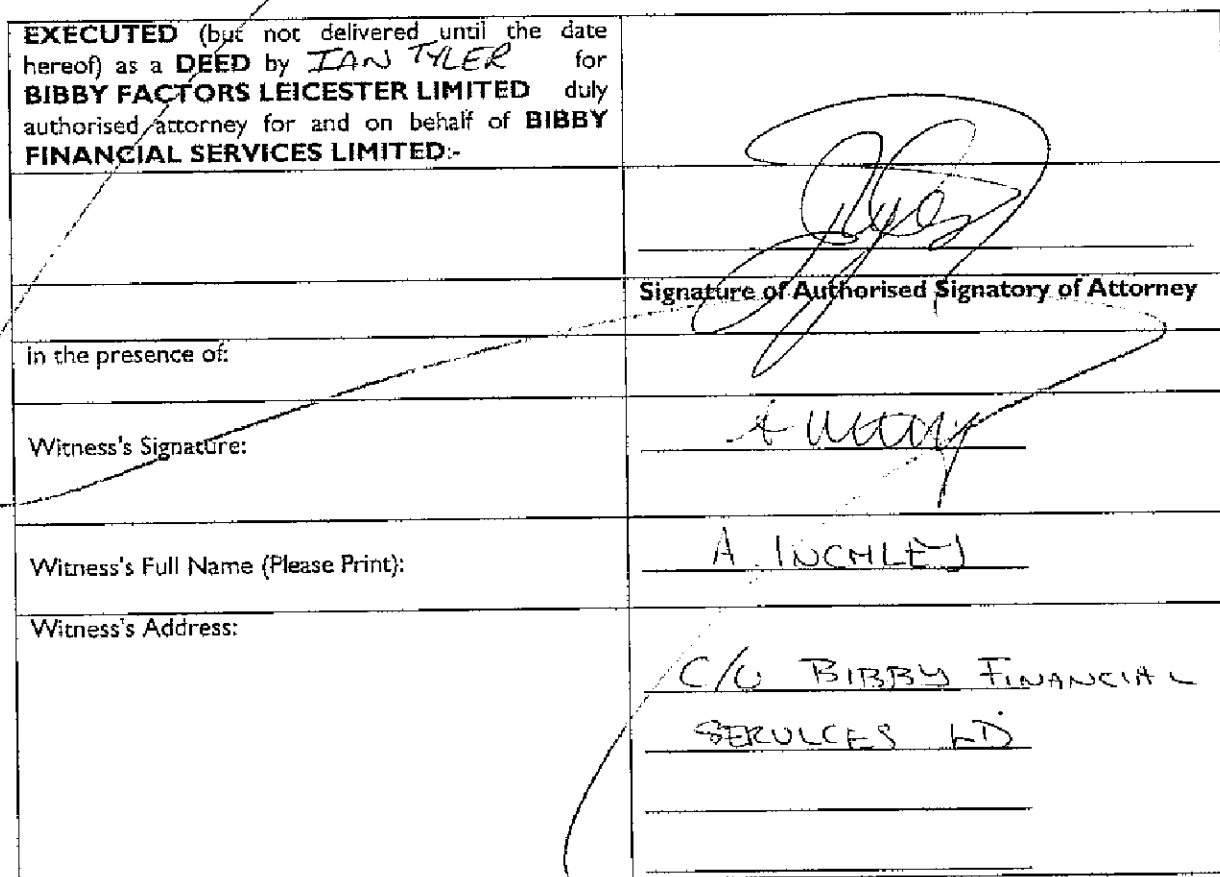 EXECUTED (but not delivered until the date
hereof) as a DEED by IAN TYLER for
BIBBY FACTORS LEICESTER LIMITED duly
authorised attorney for and on behalf of BIBBY
FINANCIAL SERVICES LIMITED:-
Signature of Authorised Signatory of Attorney
in the presence of:
Witness's Signature:
Witness's Full Name (Please Print):
A. INCHLEY
Witness's Address:
C/O BIBBY FINANCIAL
SERVICES LD